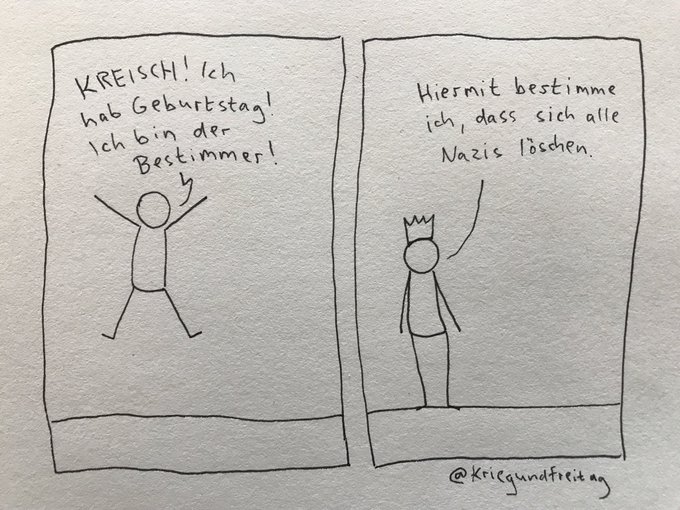 KREISCH! Ich
hab Geburtstag!
Ich bin der
Bestimmer!
Hiermit bestimme
ich, dass sich alle
Nazis löschen.
@kriegundfreitag